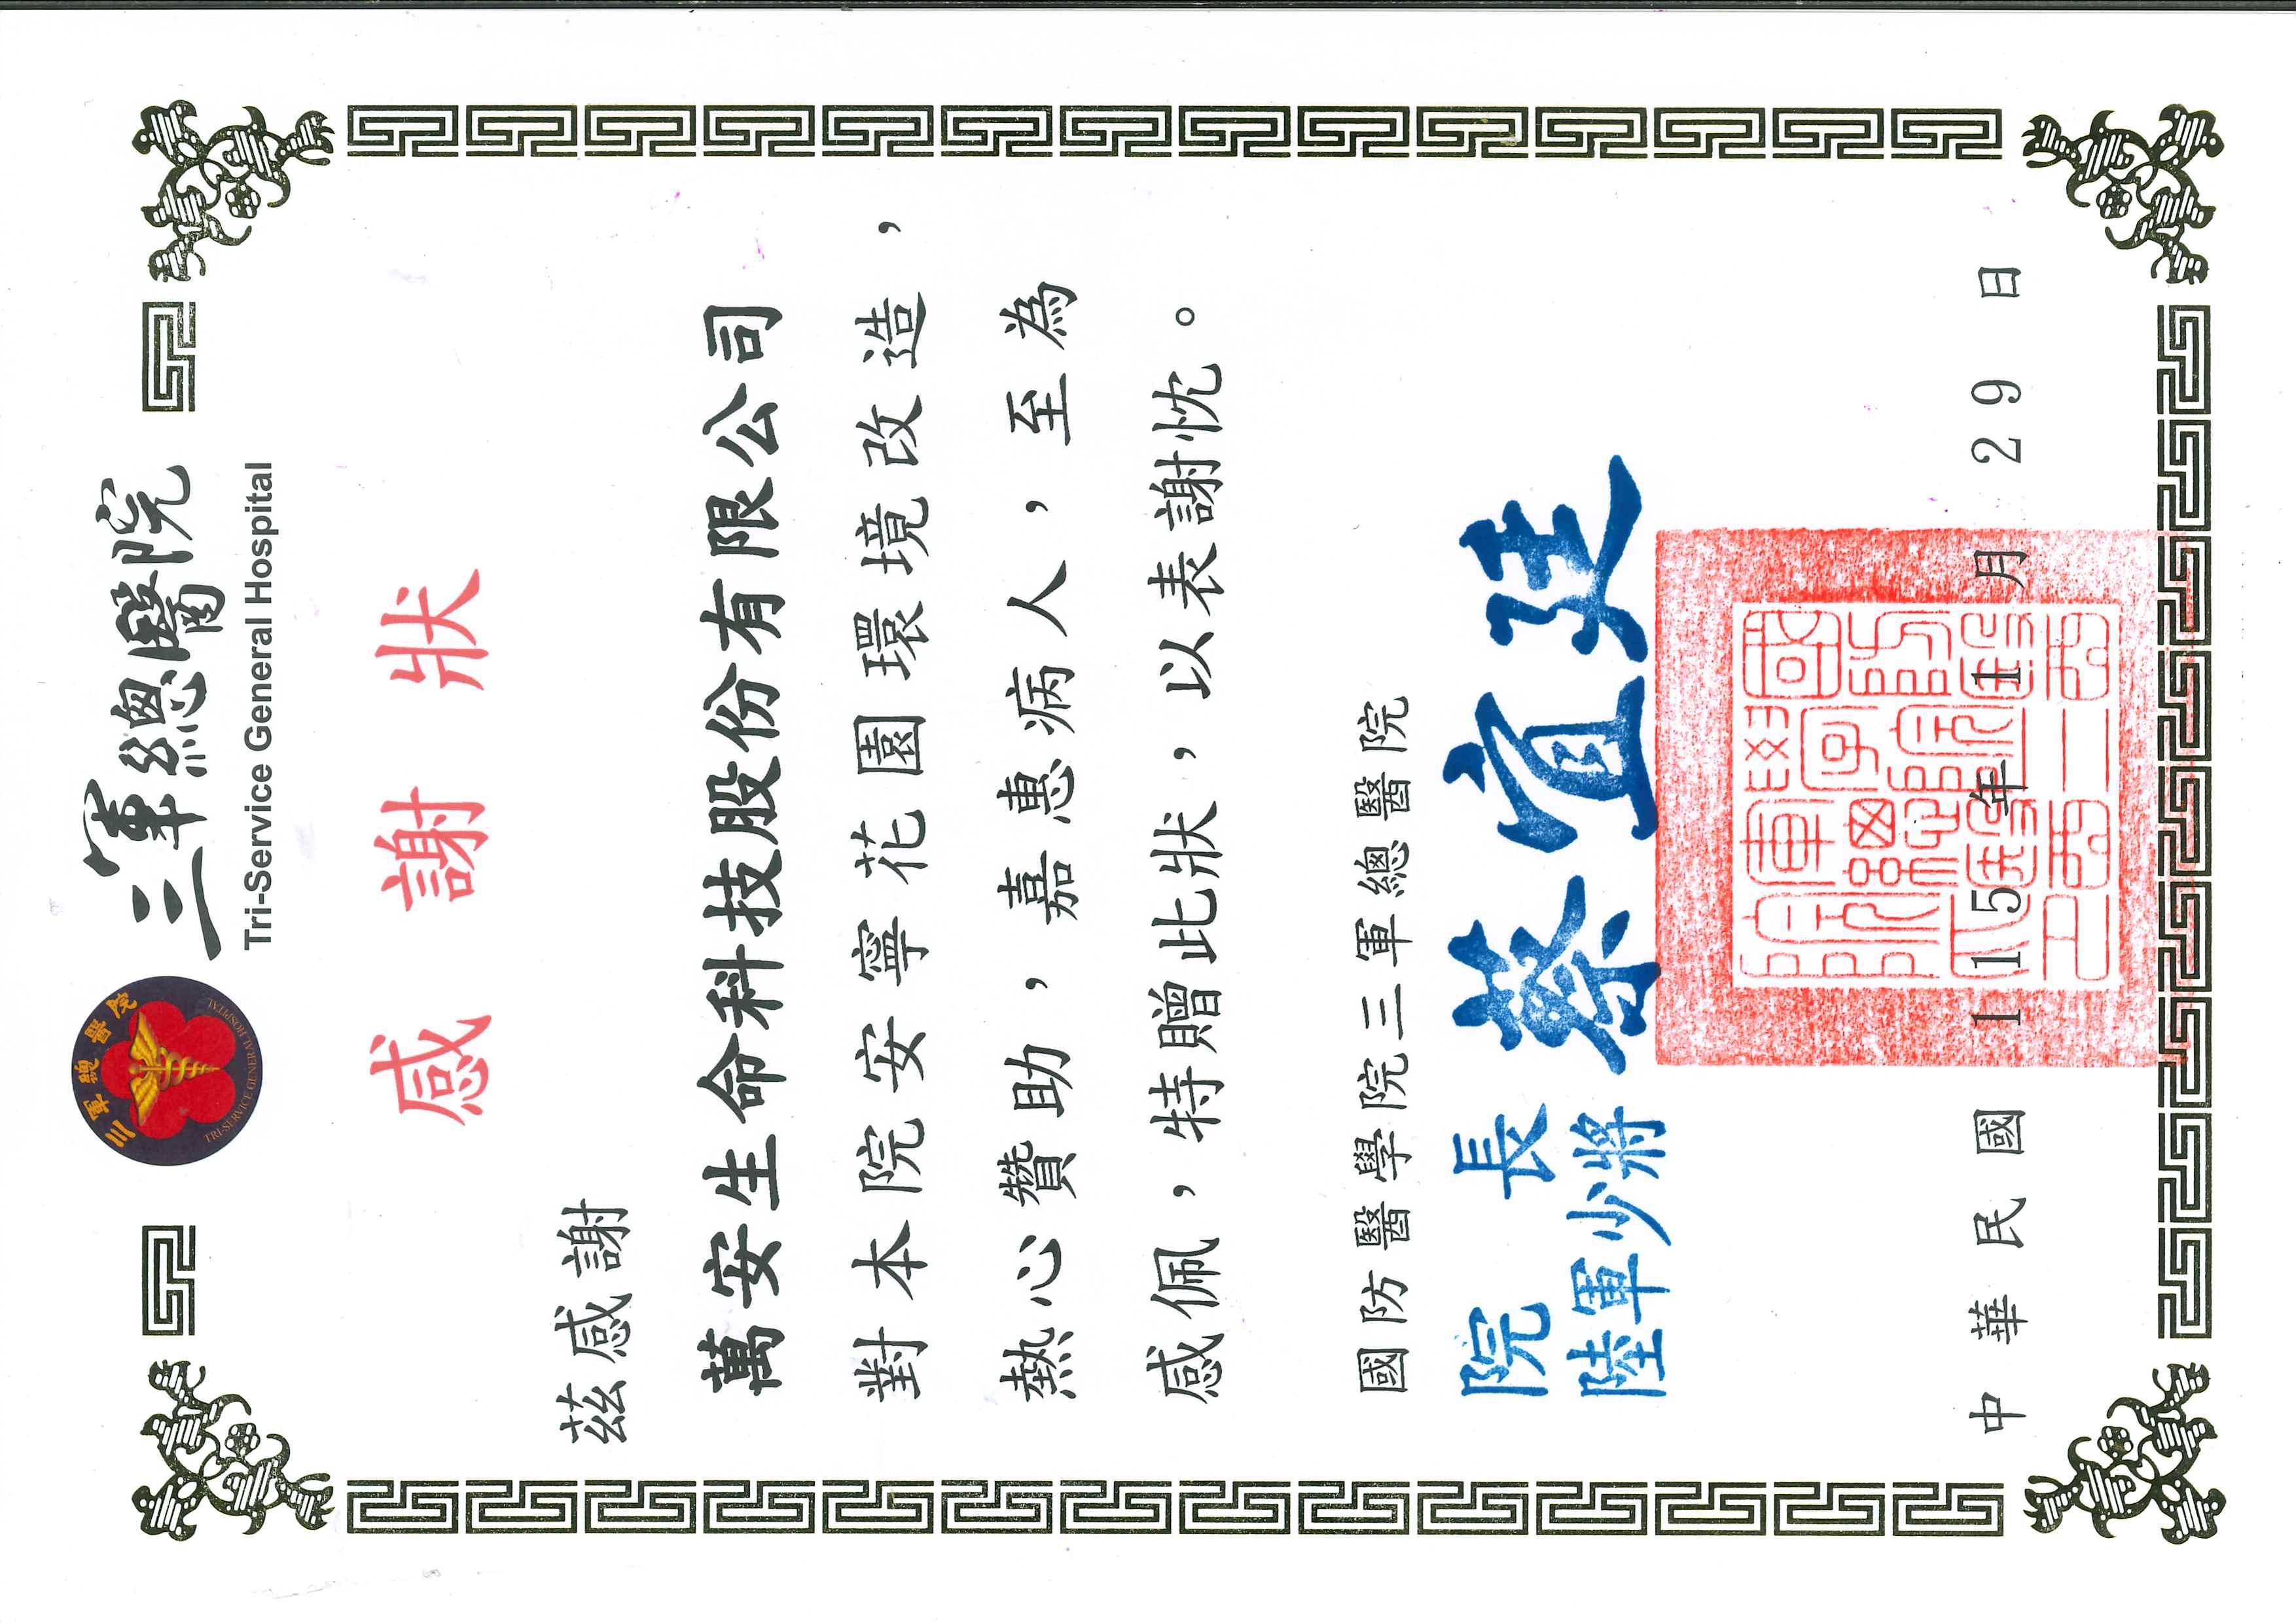 三軍總醫院
TRI-SERVICE GENERAL HOSPITAL
三軍總醫院
Tri-Service General Hospital
感謝狀
茲感謝
萬安生命科技股份有限公司
對本院安寧花園環境改造，
熱心贊助，嘉惠病人，至為
感佩，特贈此狀，以表謝忱。
國防醫學院三軍總醫院
院長
陸軍少將
蔡宜廷
中華民國115年1月29日